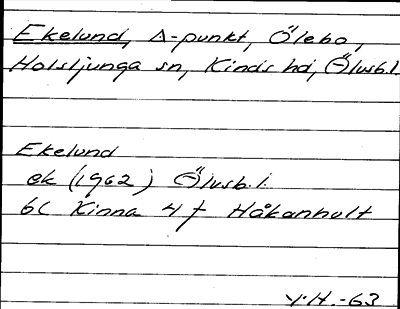 Ekelund, Δ-punkt, Ölebo,
Holsljunga sn, Kinds hd, Älvsb.l.
Ekelund
ek (1962) Älvsb.l.
6C Kinna 4f Håkanhult
Y.H.-63